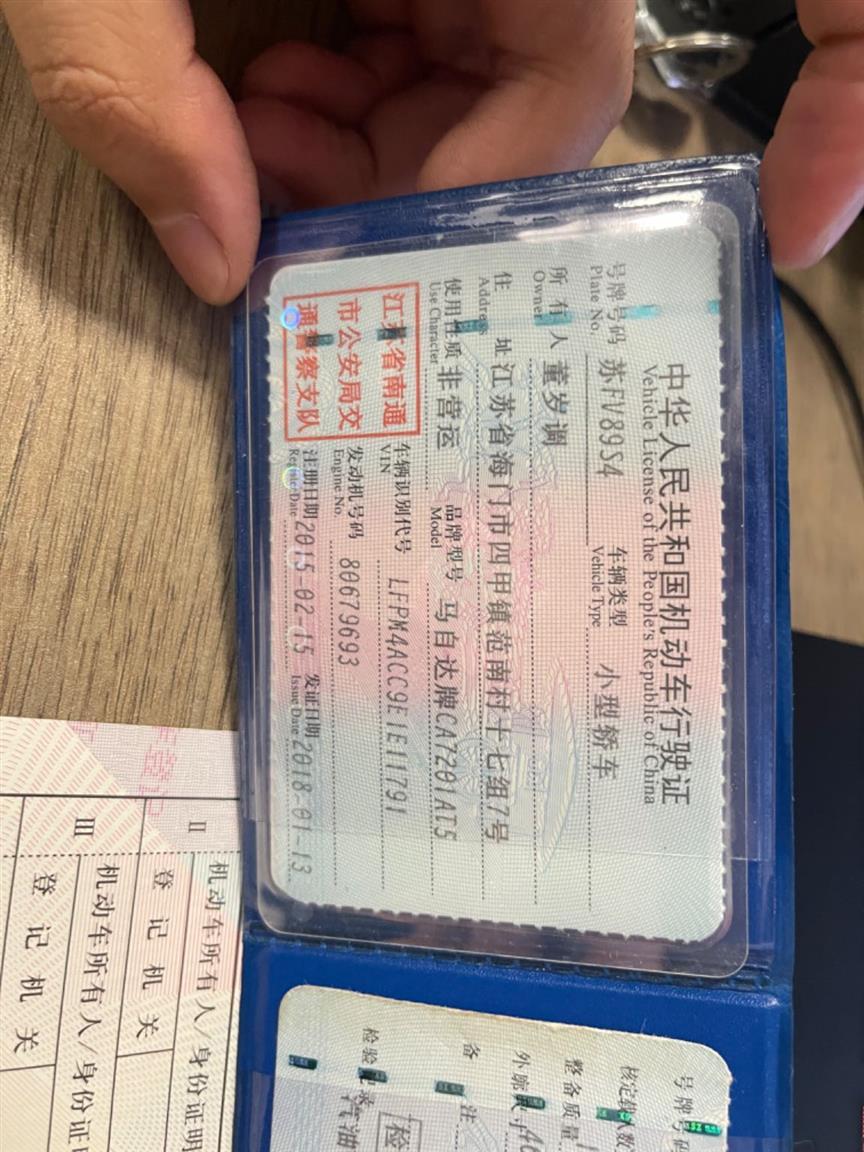 中华人民共和国机动车行驶证
Vehicle License of the People's Republic of China
号牌号码 苏FV89S4 车辆类型 小型轿车
Plate No. Vehicle Type
所有人 董岁调
Owner
住址 江苏省海门市四甲镇范南村十七组7号
Address
使用性质 非营运 品牌型号 马自达牌CA7201AT5
Use Character Model
江苏省南通
市公安局交
通警察支队
车辆识别代号 LFPM4ACC9E1E11791
VIN
发动机号码 80679693
Engine No.
注册日期 2015-02-15 发证日期 2018-01-13
Register Date Issue Date
号牌号码
核定载人数
整备质量
外廓尺寸
备注
检验记录
汽油
检
II
机动车所有人/身份证明
登记机关
III
机动车所有人/身份证明
登记机关